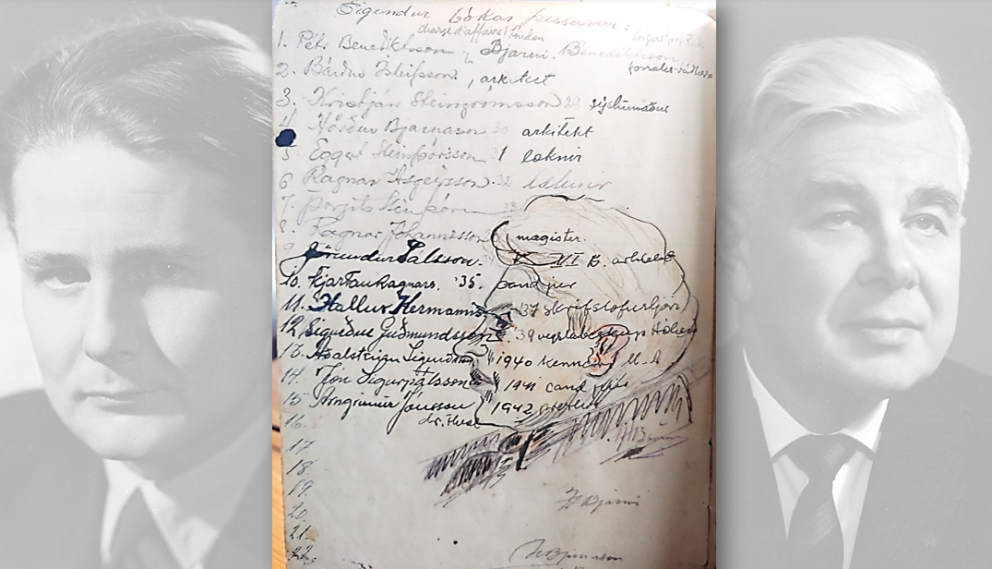 Eigendur bókar þessarar:
chargé d'affaires í London
1. Pétr Benediktsson & Bjarni Benediktsson
2. Bárður Ísleifsson, arkitect
3. Kristján Steingrímsson 29 sýslumaður
4 Hörður Bjarnason 30 arkitekt
5. Eggert Steinþórsson 31 læknir
6 Ragnar Ásgeirsson 32 læknir
7. Þorgils Steinþórsson
8. Ragnar Jóhannesson magister.
9. Pálsson. V - VI B. arkitekt
10. Kjartan Ragnars. '35. cand jur
11. Hallur Hermannss. '37 skrifstofustjóri
12. Sigurður Guðmundsson '39
13. Aðalsteinn Sigurðss. 1940 kennari M.A
14. Jón Sigurpálsson 1941 cand
15 Arngrímur Jónsson 1942 prestur
16. dr. theol
17
18.
19.
20.
21.
22.
H Bjarni